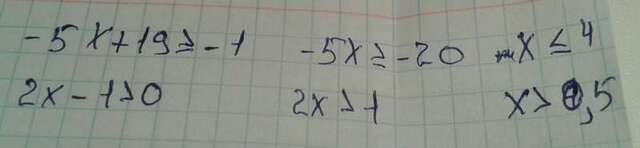 -5x+19≥-1 -5x≥-20 x≤4
2x-1>0 2x>1 x>0,5